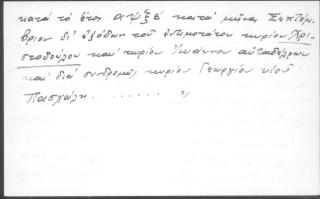 κατὰ τὸ ἔτος αψξέ κατὰ μῆνα Σεπτέμ-
βριον δι' ἐξόδων τοῦ ἐντιμοτάτου κυρίου Χρι-
στοδούλου καὶ κυρίου Ἰωάννου αὐταδέλφων
καὶ διὰ συνδρομῆς κυρίου Γεωργίου υἱοῦ
Πασχάλη ........ »